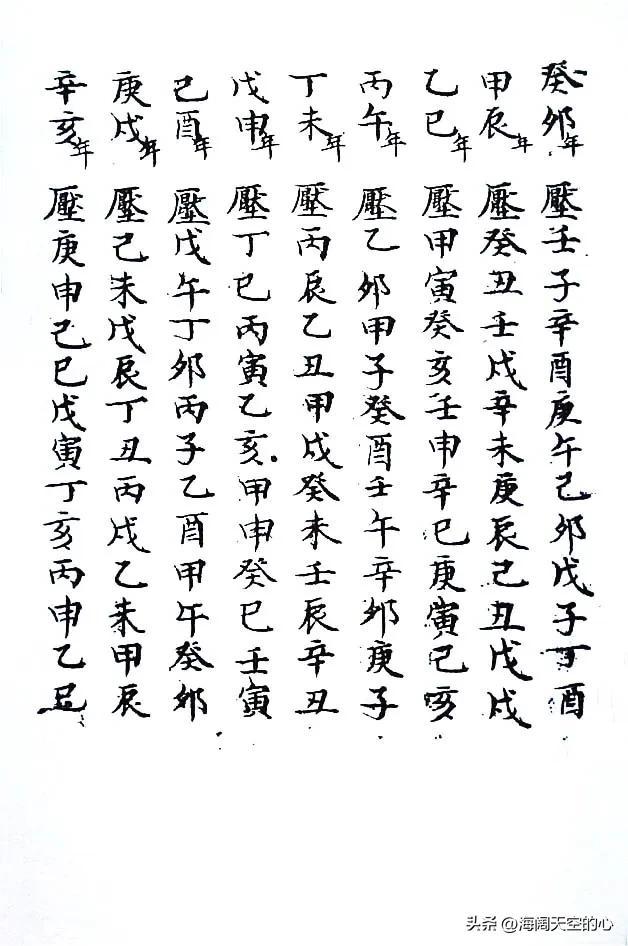 癸卯年 壓壬子辛酉庚午己卯戊子丁酉
甲辰年 壓癸丑壬戌辛未庚辰己丑戊戌
乙巳年 壓甲寅癸亥壬申辛巳庚寅己亥
丙午年 壓乙卯甲子癸酉壬午辛卯庚子
丁未年 壓丙辰乙丑甲戌癸未壬辰辛丑
戊申年 壓丁巳丙寅乙亥甲申癸巳壬寅
己酉年 壓戊午丁卯丙子乙酉甲午癸卯
庚戌年 壓己未戊辰丁丑丙戌乙未甲辰
辛亥年 壓庚申己巳戊寅丁亥丙申乙巳
头条 @海阔天空的心